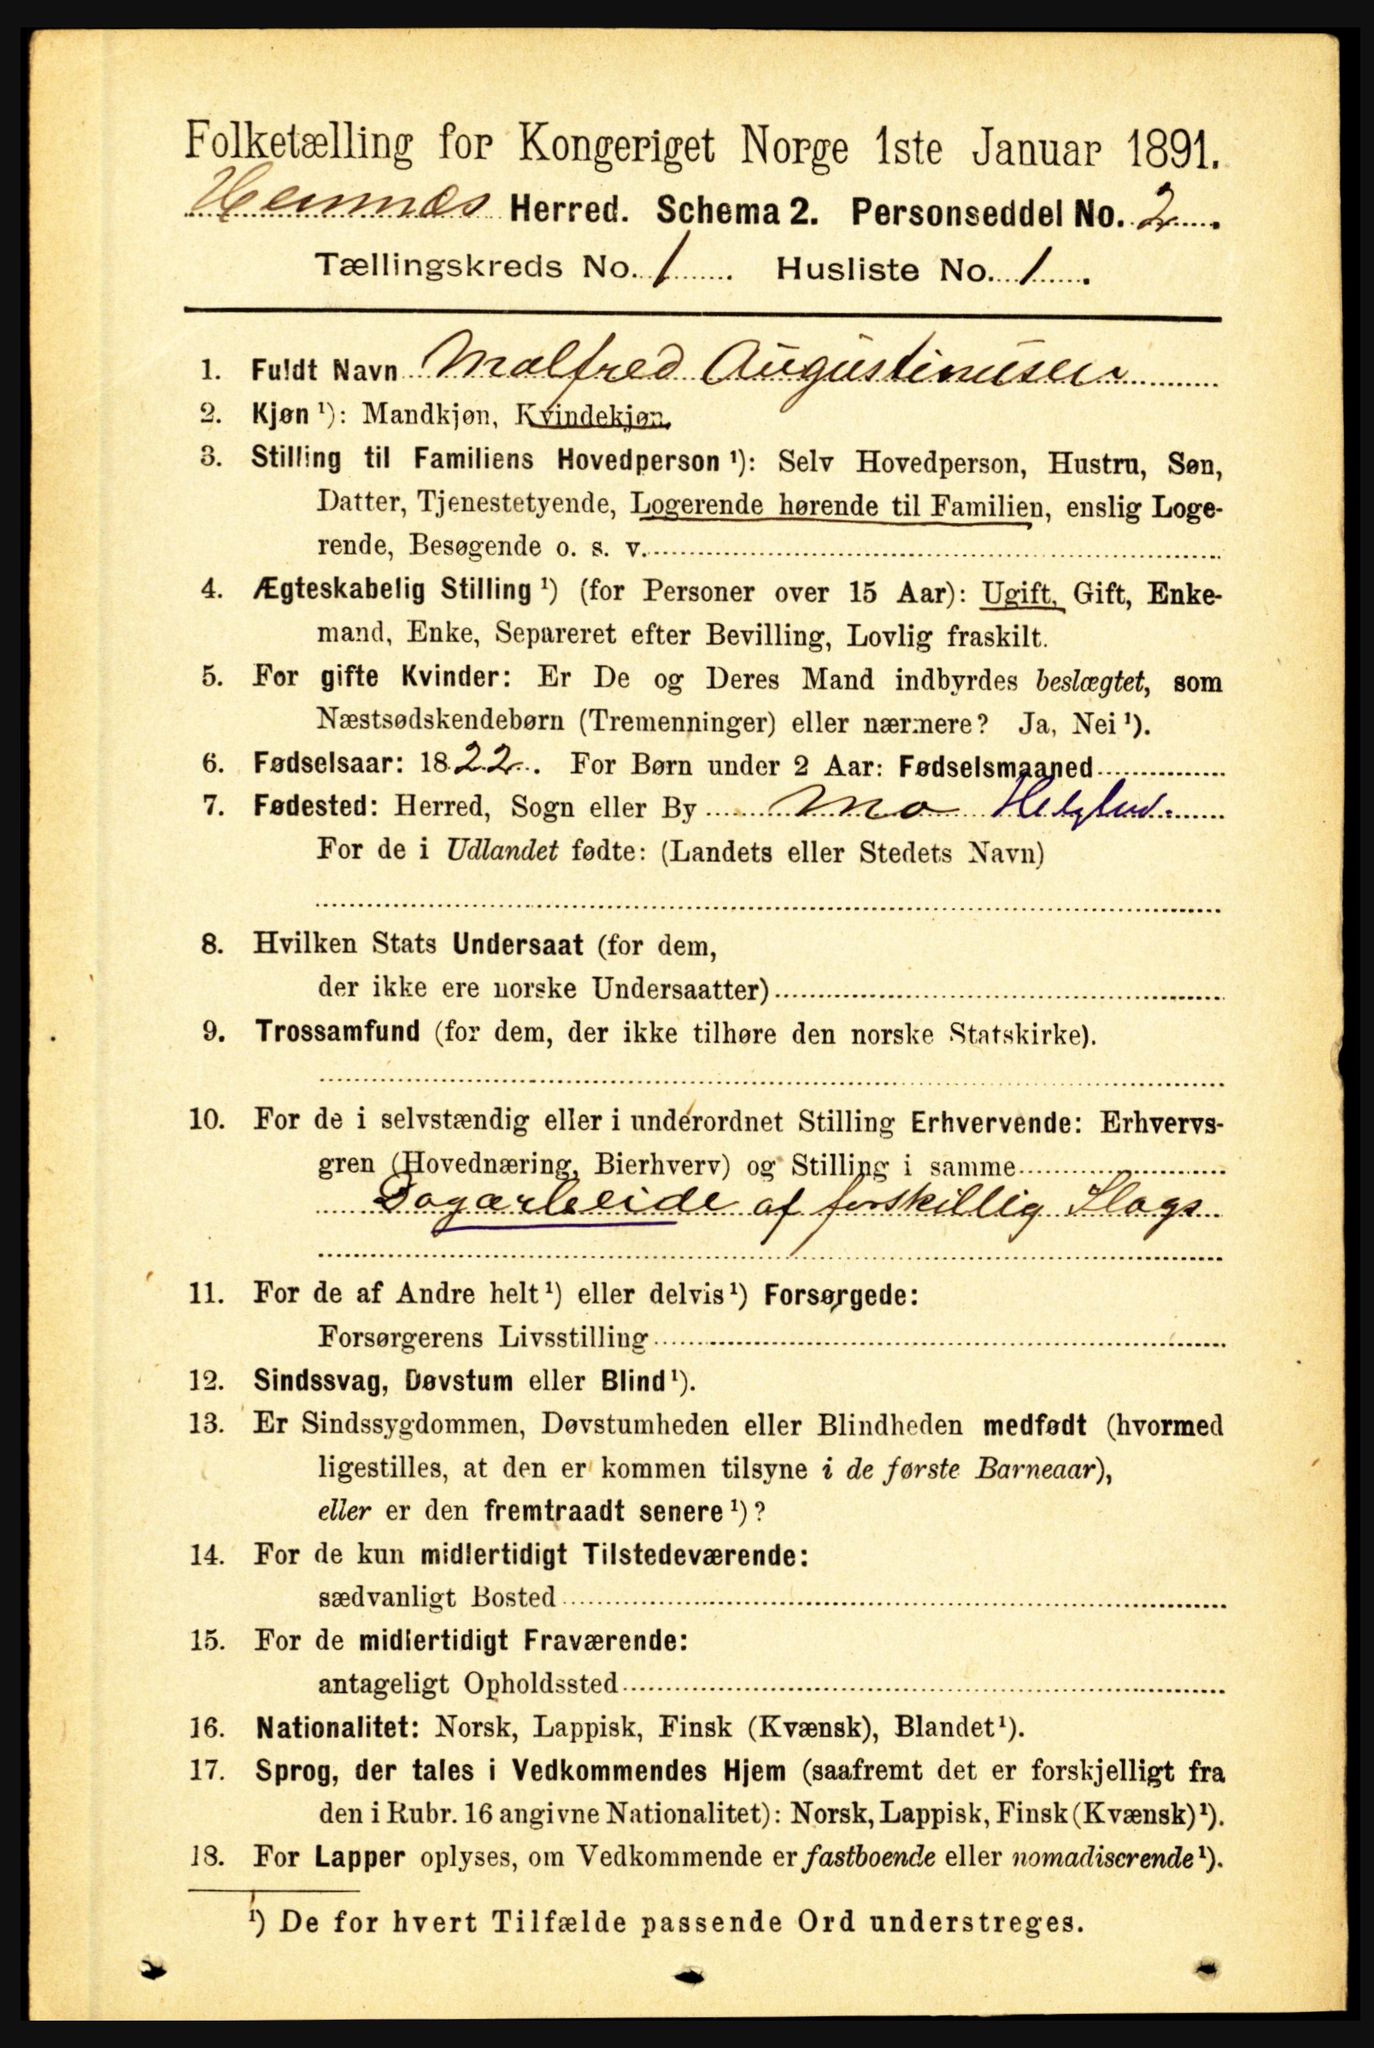 Folketælling for Kongeriget Norge 1ste Januar 1891.
Hemnæs Herred. Schema 2. Personseddel No. 2.
Tællingskreds No. 1. Husliste No. 1.
1. Fuldt Navn Malfred Augustinusen
2. Kjøn ¹): Mandkjøn, Kvindekjøn.
3. Stilling til Familiens Hovedperson ¹): Selv Hovedperson, Hustru, Søn,
Datter, Tjenestetyende, Logerende hørende til Familien, enslig Loge-
rende, Besøgende o. s. v.
4. Ægteskabelig Stilling ¹) (for Personer over 15 Aar): Ugift, Gift, Enke-
mand, Enke, Separeret efter Bevilling, Lovlig fraskilt.
5. For gifte Kvinder: Er De og Deres Mand indbyrdes beslægtet, som
Næstsødskendebørn (Tremenninger) eller nærmere? Ja, Nei ¹).
6. Fødselsaar: 1822. For Børn under 2 Aar: Fødselsmaaned
7. Fødested: Herred, Sogn eller By Mo
For de i Udlandet fødte: (Landets eller Stedets Navn)
8. Hvilken Stats Undersaat (for dem,
der ikke ere norske Undersaatter)
9. Trossamfund (for dem, der ikke tilhøre den norske Statskirke).
10. For de i selvstændig eller i underordnet Stilling Erhvervende: Erhvervs-
gren (Hovednæring, Bierhverv) og Stilling i samme
Dagarbeide af forskillig Slags
11. For de af Andre helt ¹) eller delvis ¹) Forsørgede:
Forsørgerens Livsstilling
12. Sindssvag, Døvstum eller Blind ¹).
13. Er Sindssygdommen, Døvstumheden eller Blindheden medfødt (hvormed
ligestilles, at den er kommen tilsyne i de første Barneaar),
eller er den fremtraadt senere ¹)?
14. For de kun midlertidigt Tilstedeværende:
sædvanligt Bosted
15. For de midlertidigt Fraværende:
antageligt Opholdssted
16. Nationalitet: Norsk, Lappisk, Finsk (Kvænsk), Blandet ¹).
17. Sprog, der tales i Vedkommendes Hjem (saafremt det er forskjelligt fra
den i Rubr. 16 angivne Nationalitet): Norsk, Lappisk, Finsk (Kvænsk) ¹).
18. For Lapper oplyses, om Vedkommende er fastboende eller nomadiserende ¹).
¹) De for hvert Tilfælde passende Ord understreges.